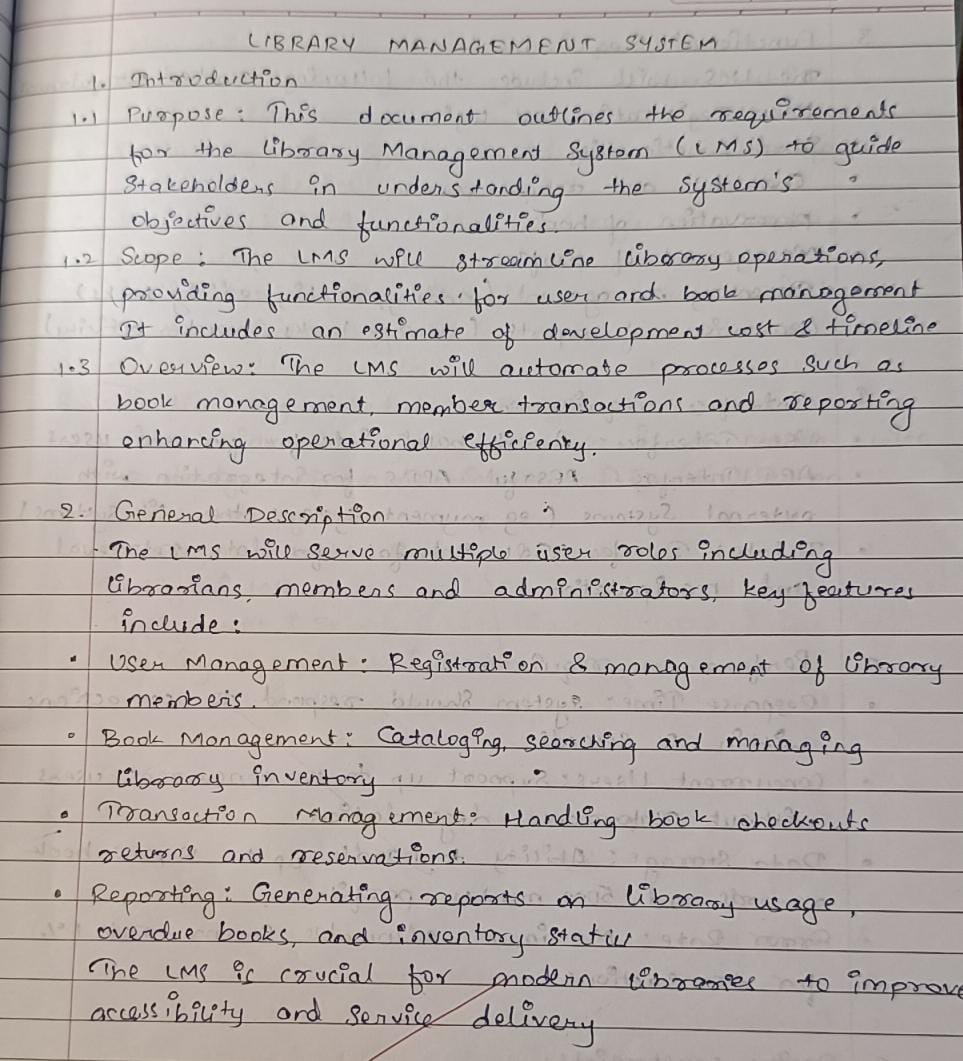 LIBRARY MANAGEMENT SYSTEM
1. Introduction
1.1 Purpose: This document outlines the requirements
for the Library Management System (LMS) to guide
Stakeholders in understanding the system's
objectives and functionalities.
1.2 Scope: The LMS will streamline library operations,
providing functionalities for user and book management
It includes an estimate of development cost & timeline
1.3 Overview: The LMS will automate processes such as
book management, member transactions and reporting
enhancing operational efficiency.
2. General Description
The LMS will serve multiple user roles including
librarians, members and administrators, key features
include:
• User Management: Registration & management of library
members.
• Book Management: Cataloging, searching and managing
library inventory
• Transaction Management: Handling book checkouts
returns and reservations.
• Reporting: Generating reports on library usage,
overdue books, and inventory status
The LMS is crucial for modern libraries to improve
accessibility and service delivery